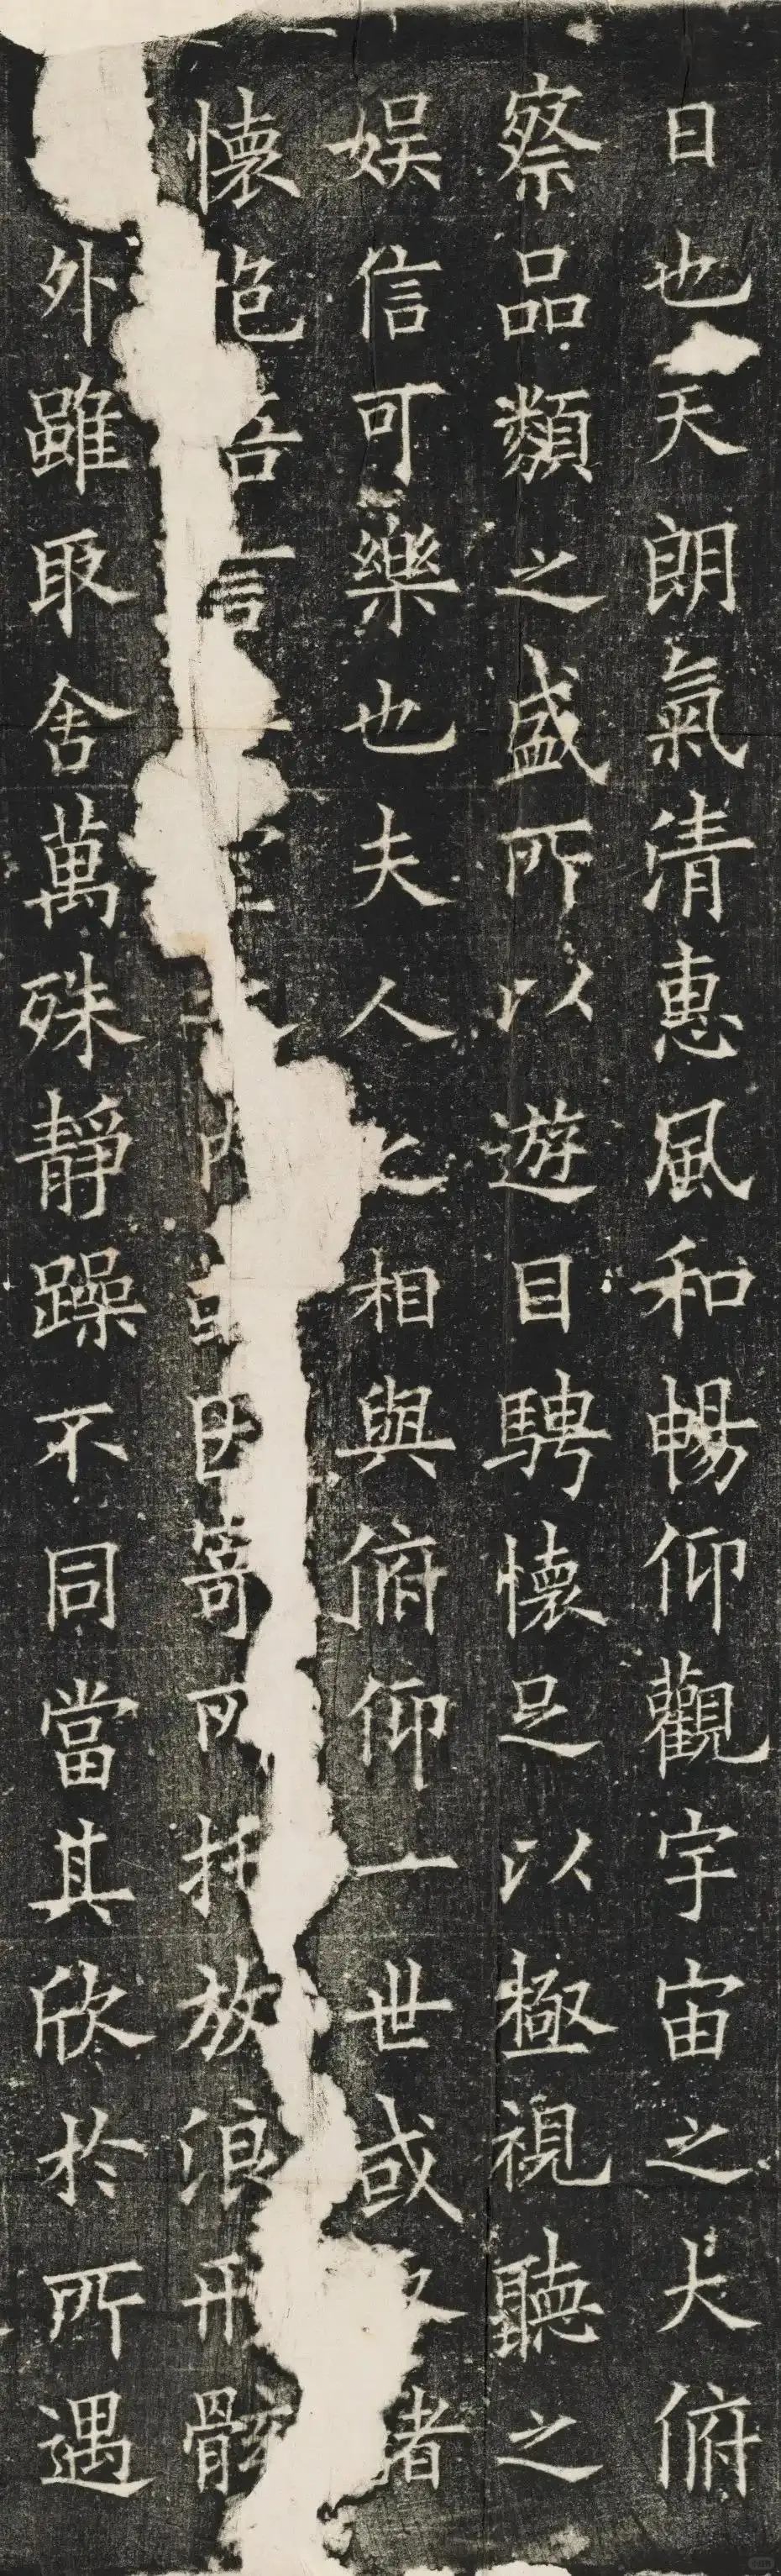 日也天朗氣清惠風和暢仰觀宇宙之大俯
察品類之盛所以遊目騁懷足以極視聽之
娛信可樂也夫人之相與俯仰一世或諸
懷抱悟言或因寄所托放浪形骸
外雖取舍萬殊靜躁不同當其欣於所遇